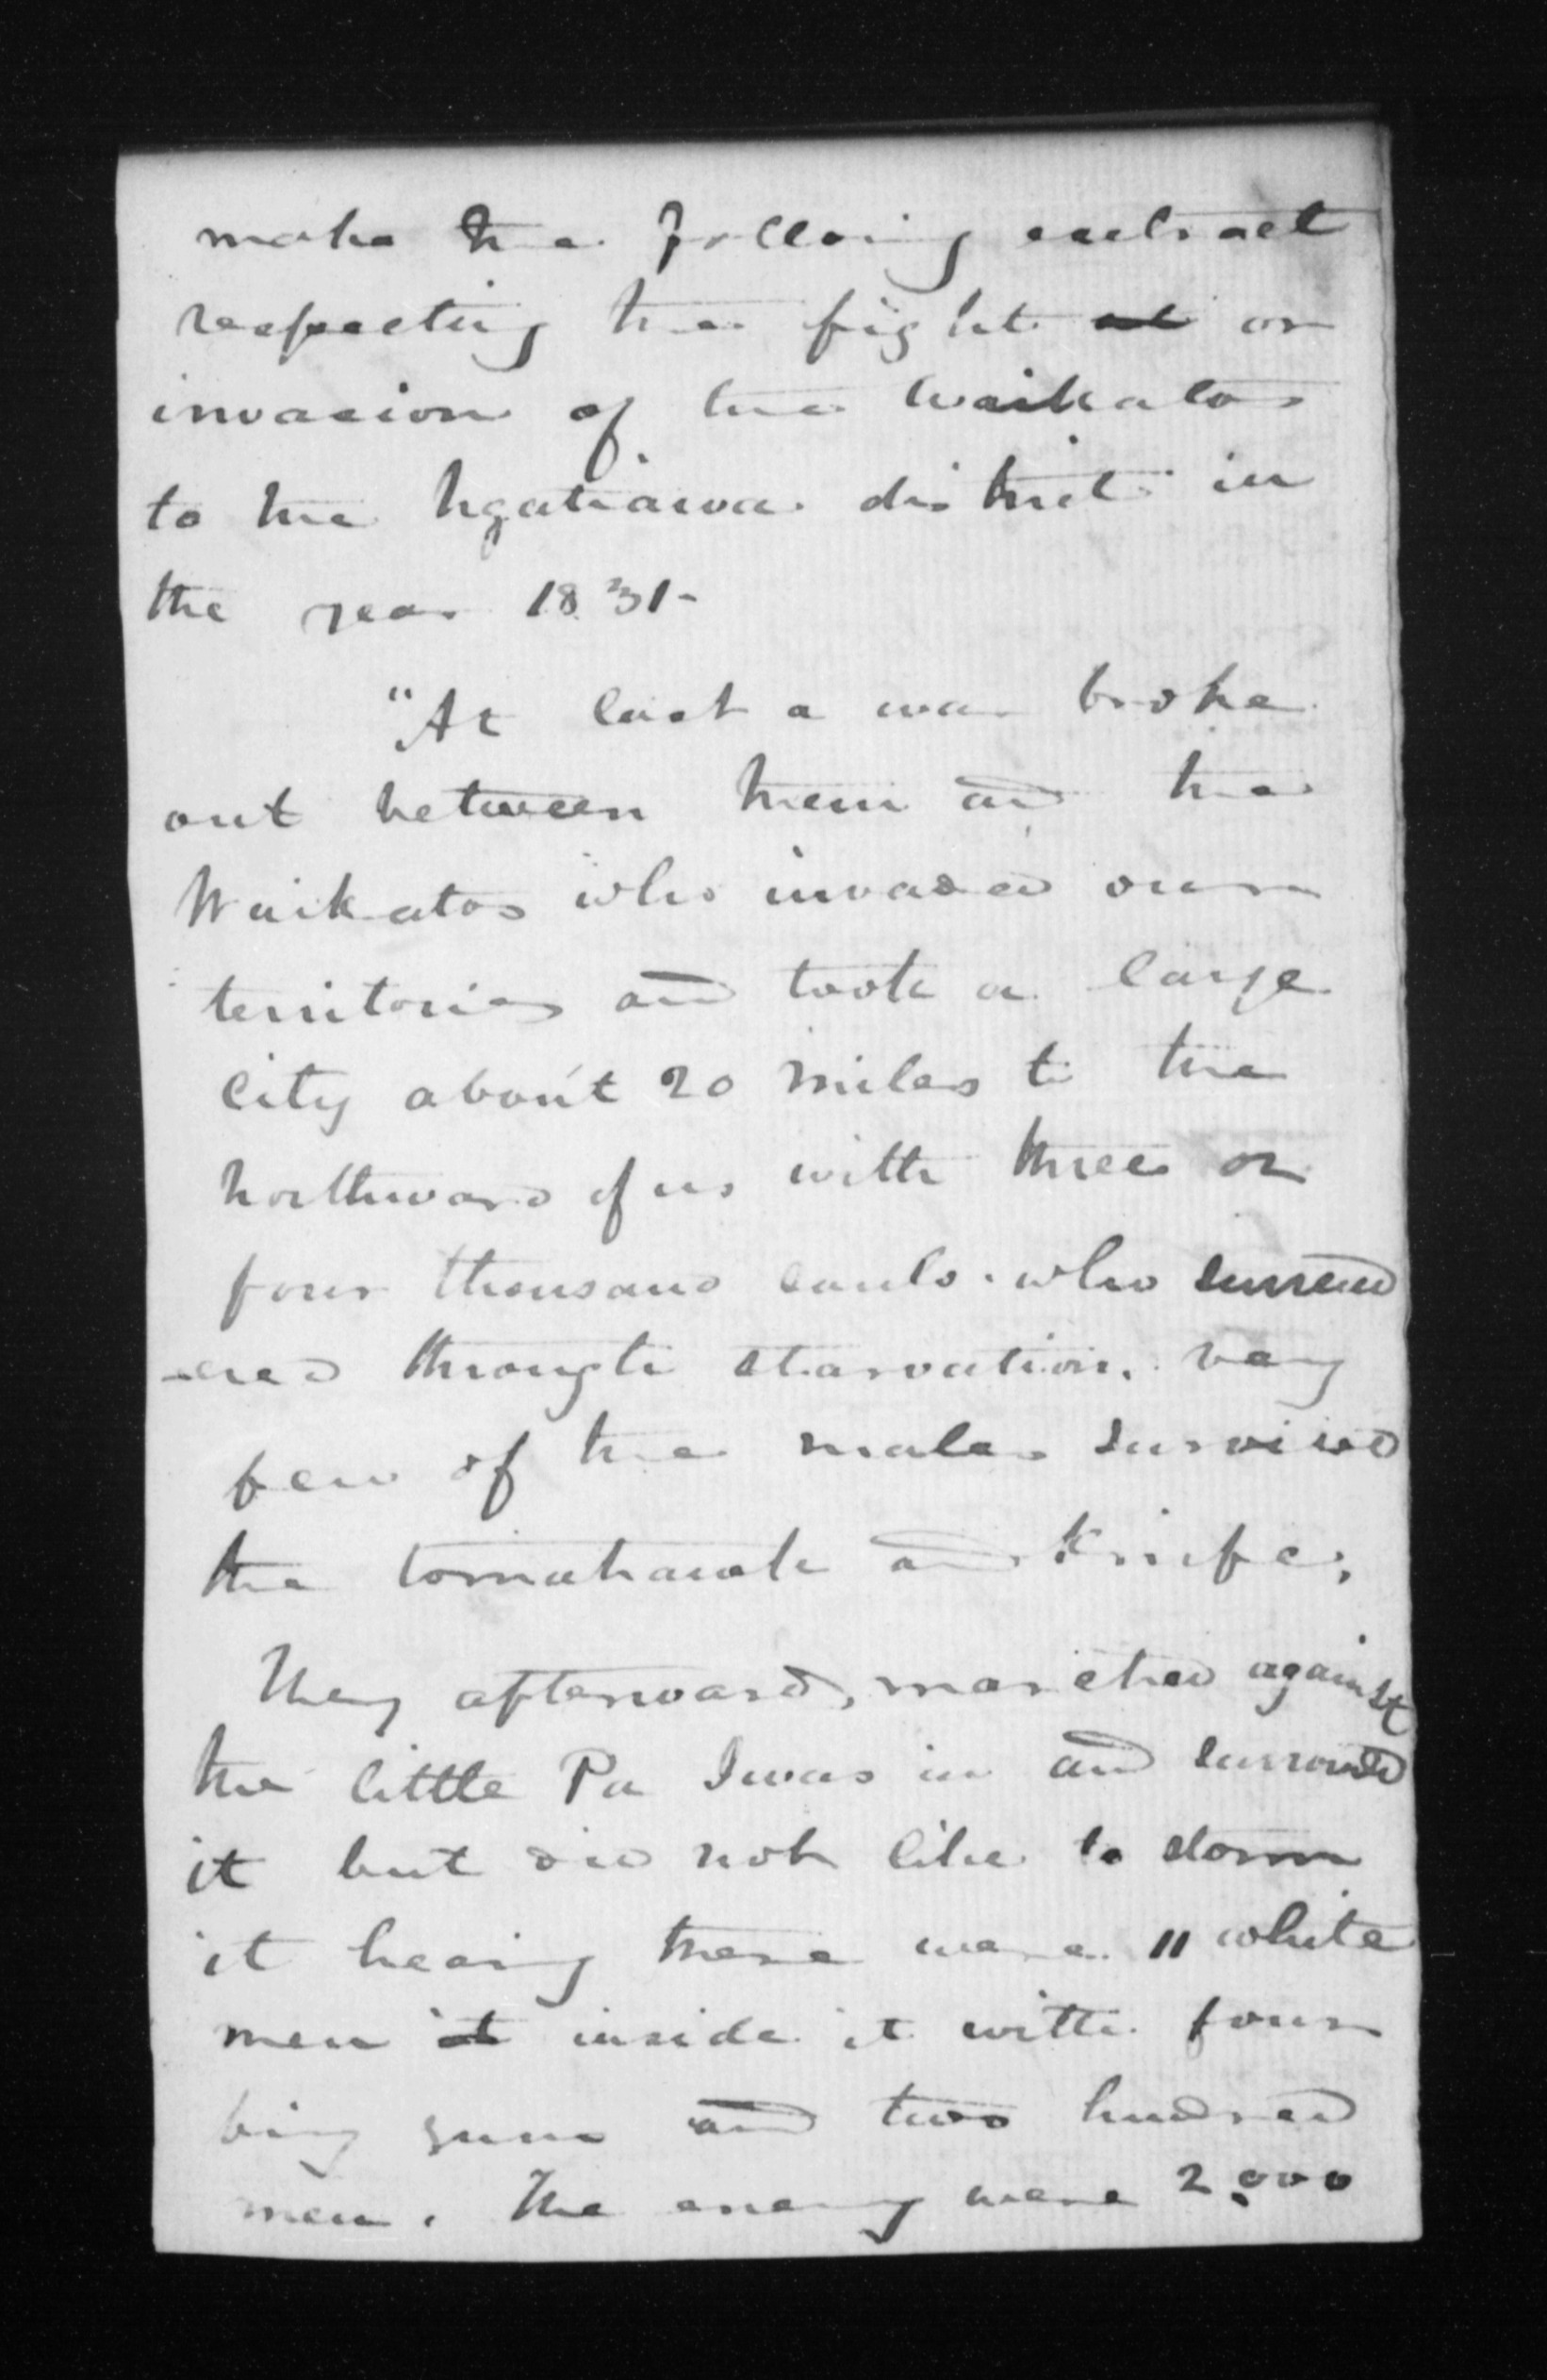 make the following extract
respecting the fight at or
invasion of the Waikatos
to the Ngatiawa district in
the year 1831-
"At last a war broke
out between them and the
Waikatos who invaded our
territories and took a large
city about 20 miles to the
northward of us with three or
four thousand souls. who surrend
-ered through starvation. very
few of the males survived
the tomahawk and knife;
They afterwards, marched against
the little Pa I was in and surrounded
it but did not like to storm
it hearing there were 11 white
men at inside it with four
big guns and two hundred
men. The enemy were 2,000